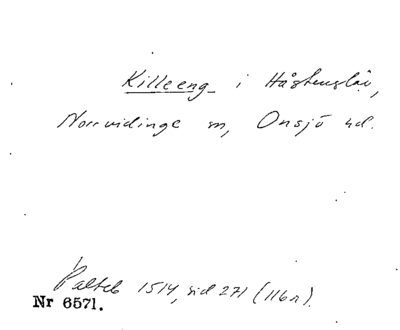 Killeeng i Håstenslöv,
Norrvidinge sn, Onsjö hd.
Palteb 1514, sid 271 (116r).
Nr 6571.